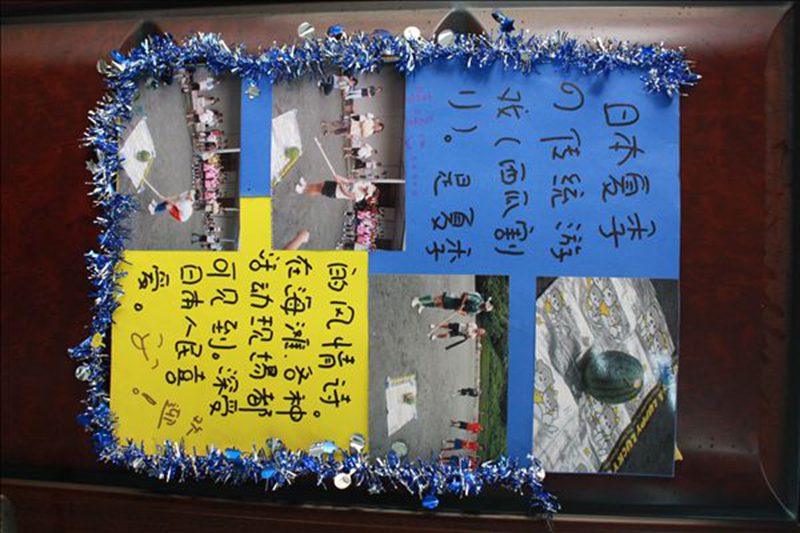 日本夏季
の传统游
戏（西瓜割
り）。是夏季
的风情诗。
在海滩、各种
活动现场都
可见到。深受
日本人民喜
爱。